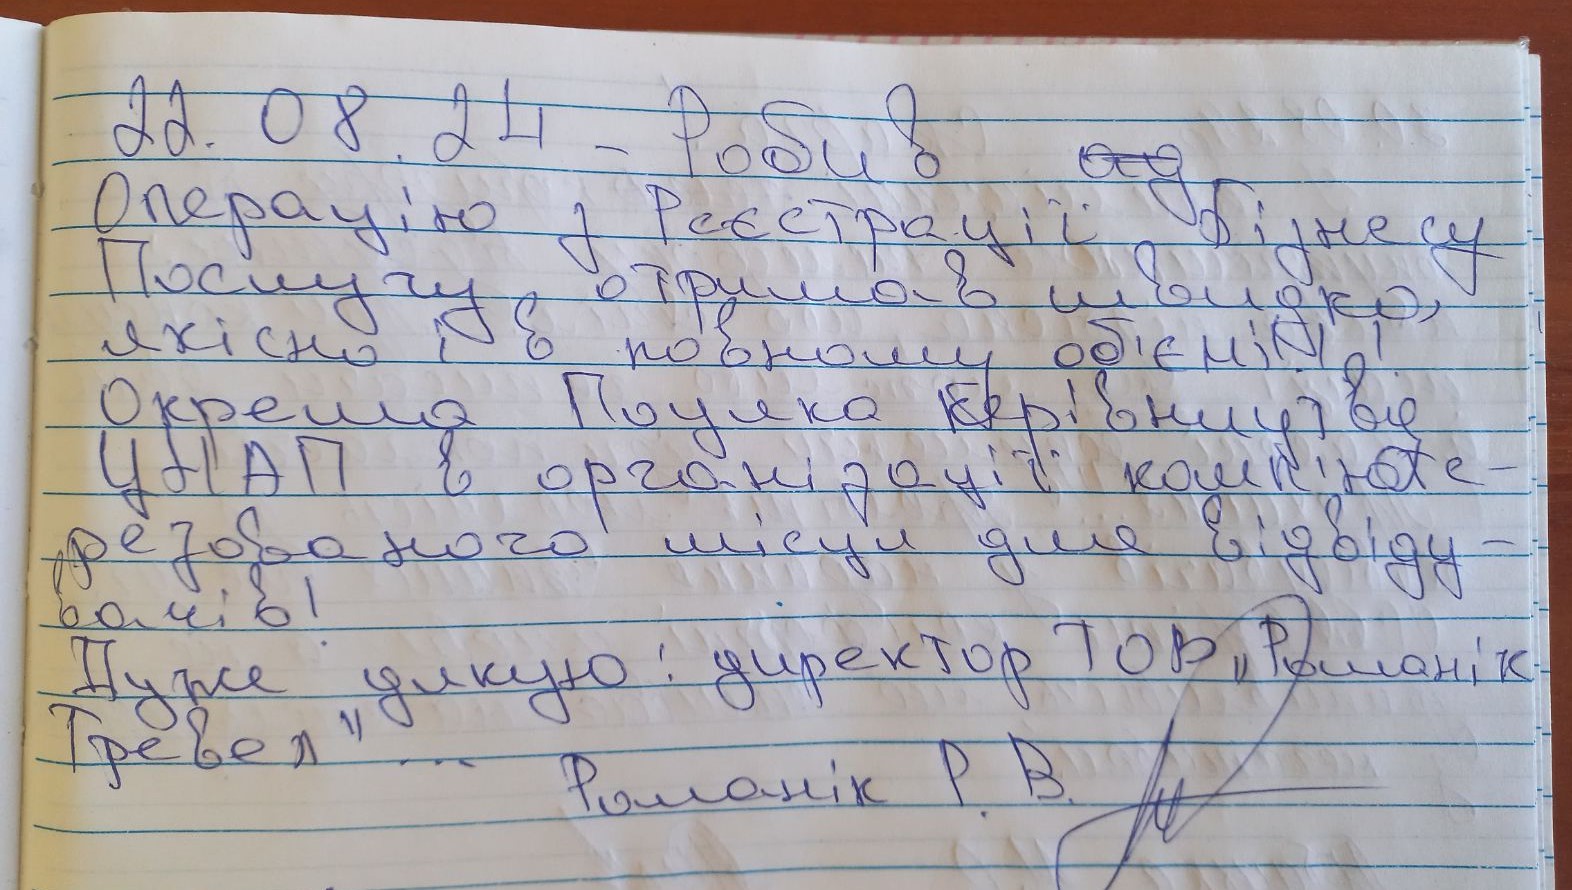 22.08.24 - Робив
Операцію з Реєстрації бізнесу
Послугу отримав швидко,
якісно і в повному об'ємі!!!
Окрема Подяка Керівництву
ЦНАП в організації компʼюте-
резованого місця для відвіду-
вачів!
Дуже дякую! директор ТОВ „Романік
Тревел" ...
Романік Р. В.